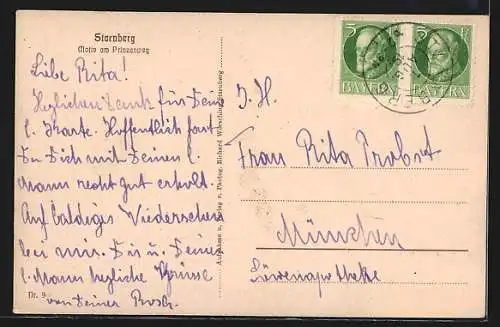 Starnberg
Motiv am Prinzenweg
Liebe Rita!
Herzlichen Dank für Deine
l. Karte. Hoffentlich hast
Du Dich mit Deinem l.
Mann recht gut erholt.
Auf baldiges Wiedersehen
bei mir. Dir u. Deinem
l. Mann herzliche Grüsse
von Deiner
Nr. 9
Aufnahme u. Verlag v. Photog. Richard Wörsching, Starnberg
5 5
BAYERN BAYERN
Frau Rita Probst
München
Löwenapotheke